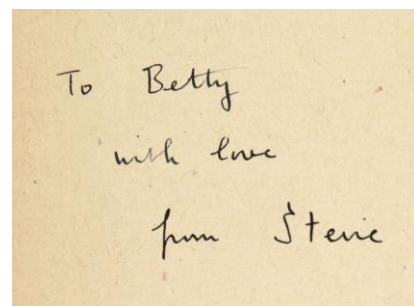 To Betty
with love
from Stevie